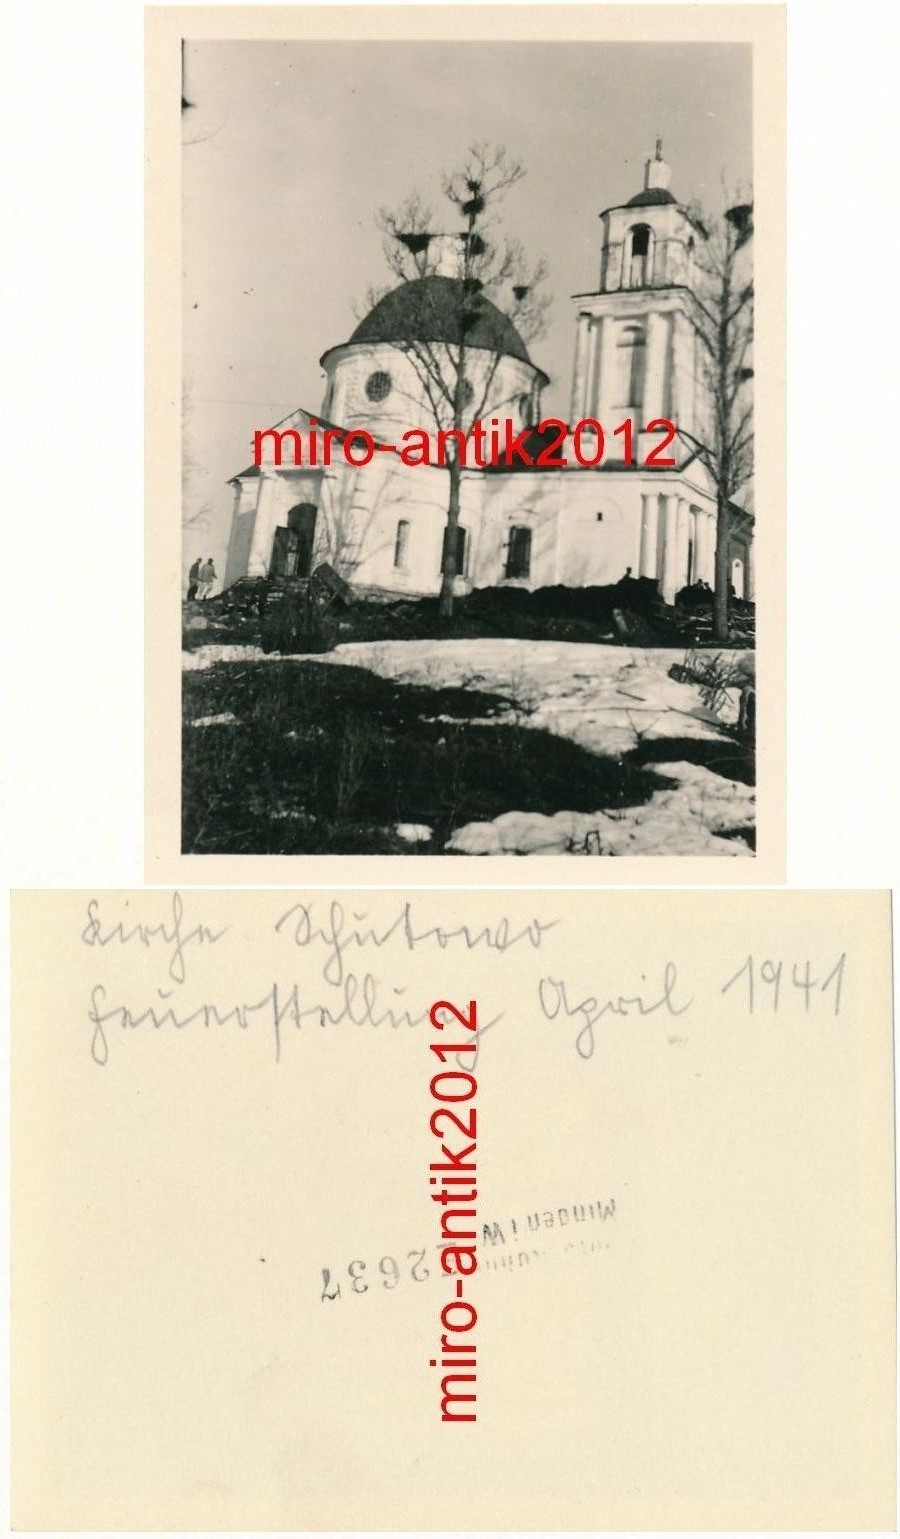 miro-antik2012
Kirche Schutowo
Feuerstellung April 1941
miro-antik2012
Minden i W
2637